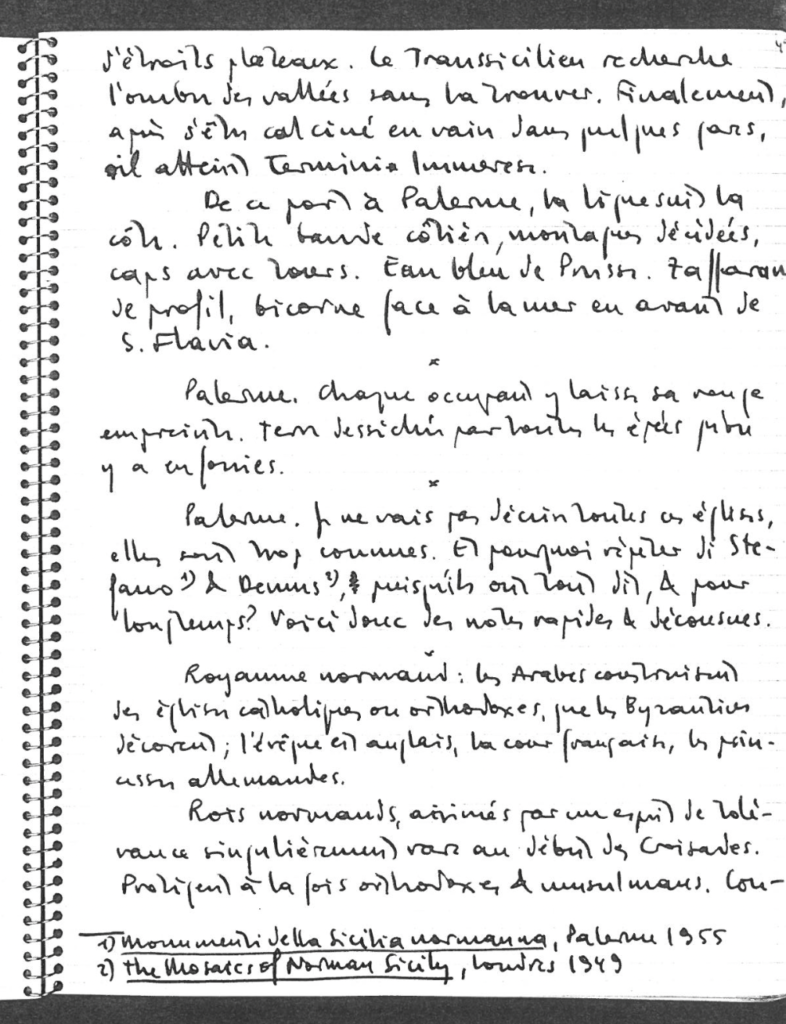 d'étroits plateaux. Le Transsicilien recherche
l'ombre des vallées sans la trouver. Finalement,
après s'être calciné en vain dans quelques gares,
il atteint Terminia Immerese.
De ce port à Palerme, la ligne suit la
côte. Petite bande côtière, montagnes décidées,
caps avec tours. Eau bleu de Prusse. Zafferan
de profil, bicorne face à la mer en avant de
S. Flavia.
*
Palerme. Chaque occupant y laisse sa rouge
empreinte. Terre desséchée par toutes les épées qu'on
y a enfouies.
*
Palerme. Je ne vais pas décrire toutes ces églises,
elles sont trop connues. Et pourquoi répéter Di Ste-
fano 1) & Demus 2), puisqu'ils ont tout dit, & pour
longtemps? Voici donc des notes rapides & décousues.
*
Royaume normand: les Arabes construisent
des églises catholiques ou orthodoxes, que les Byzantins
décorent; l'évêque est anglais, la cour française, les prin-
cesses allemandes.
Rois normands, animés par un esprit de tolé-
rance singulièrement rare au début des Croisades.
Protègent à la fois orthodoxes & musulmans. Con-
1) Monumenti della Sicilia normanna, Palerme 1955
2) The Mosaics of Norman Sicily, Londres 1949